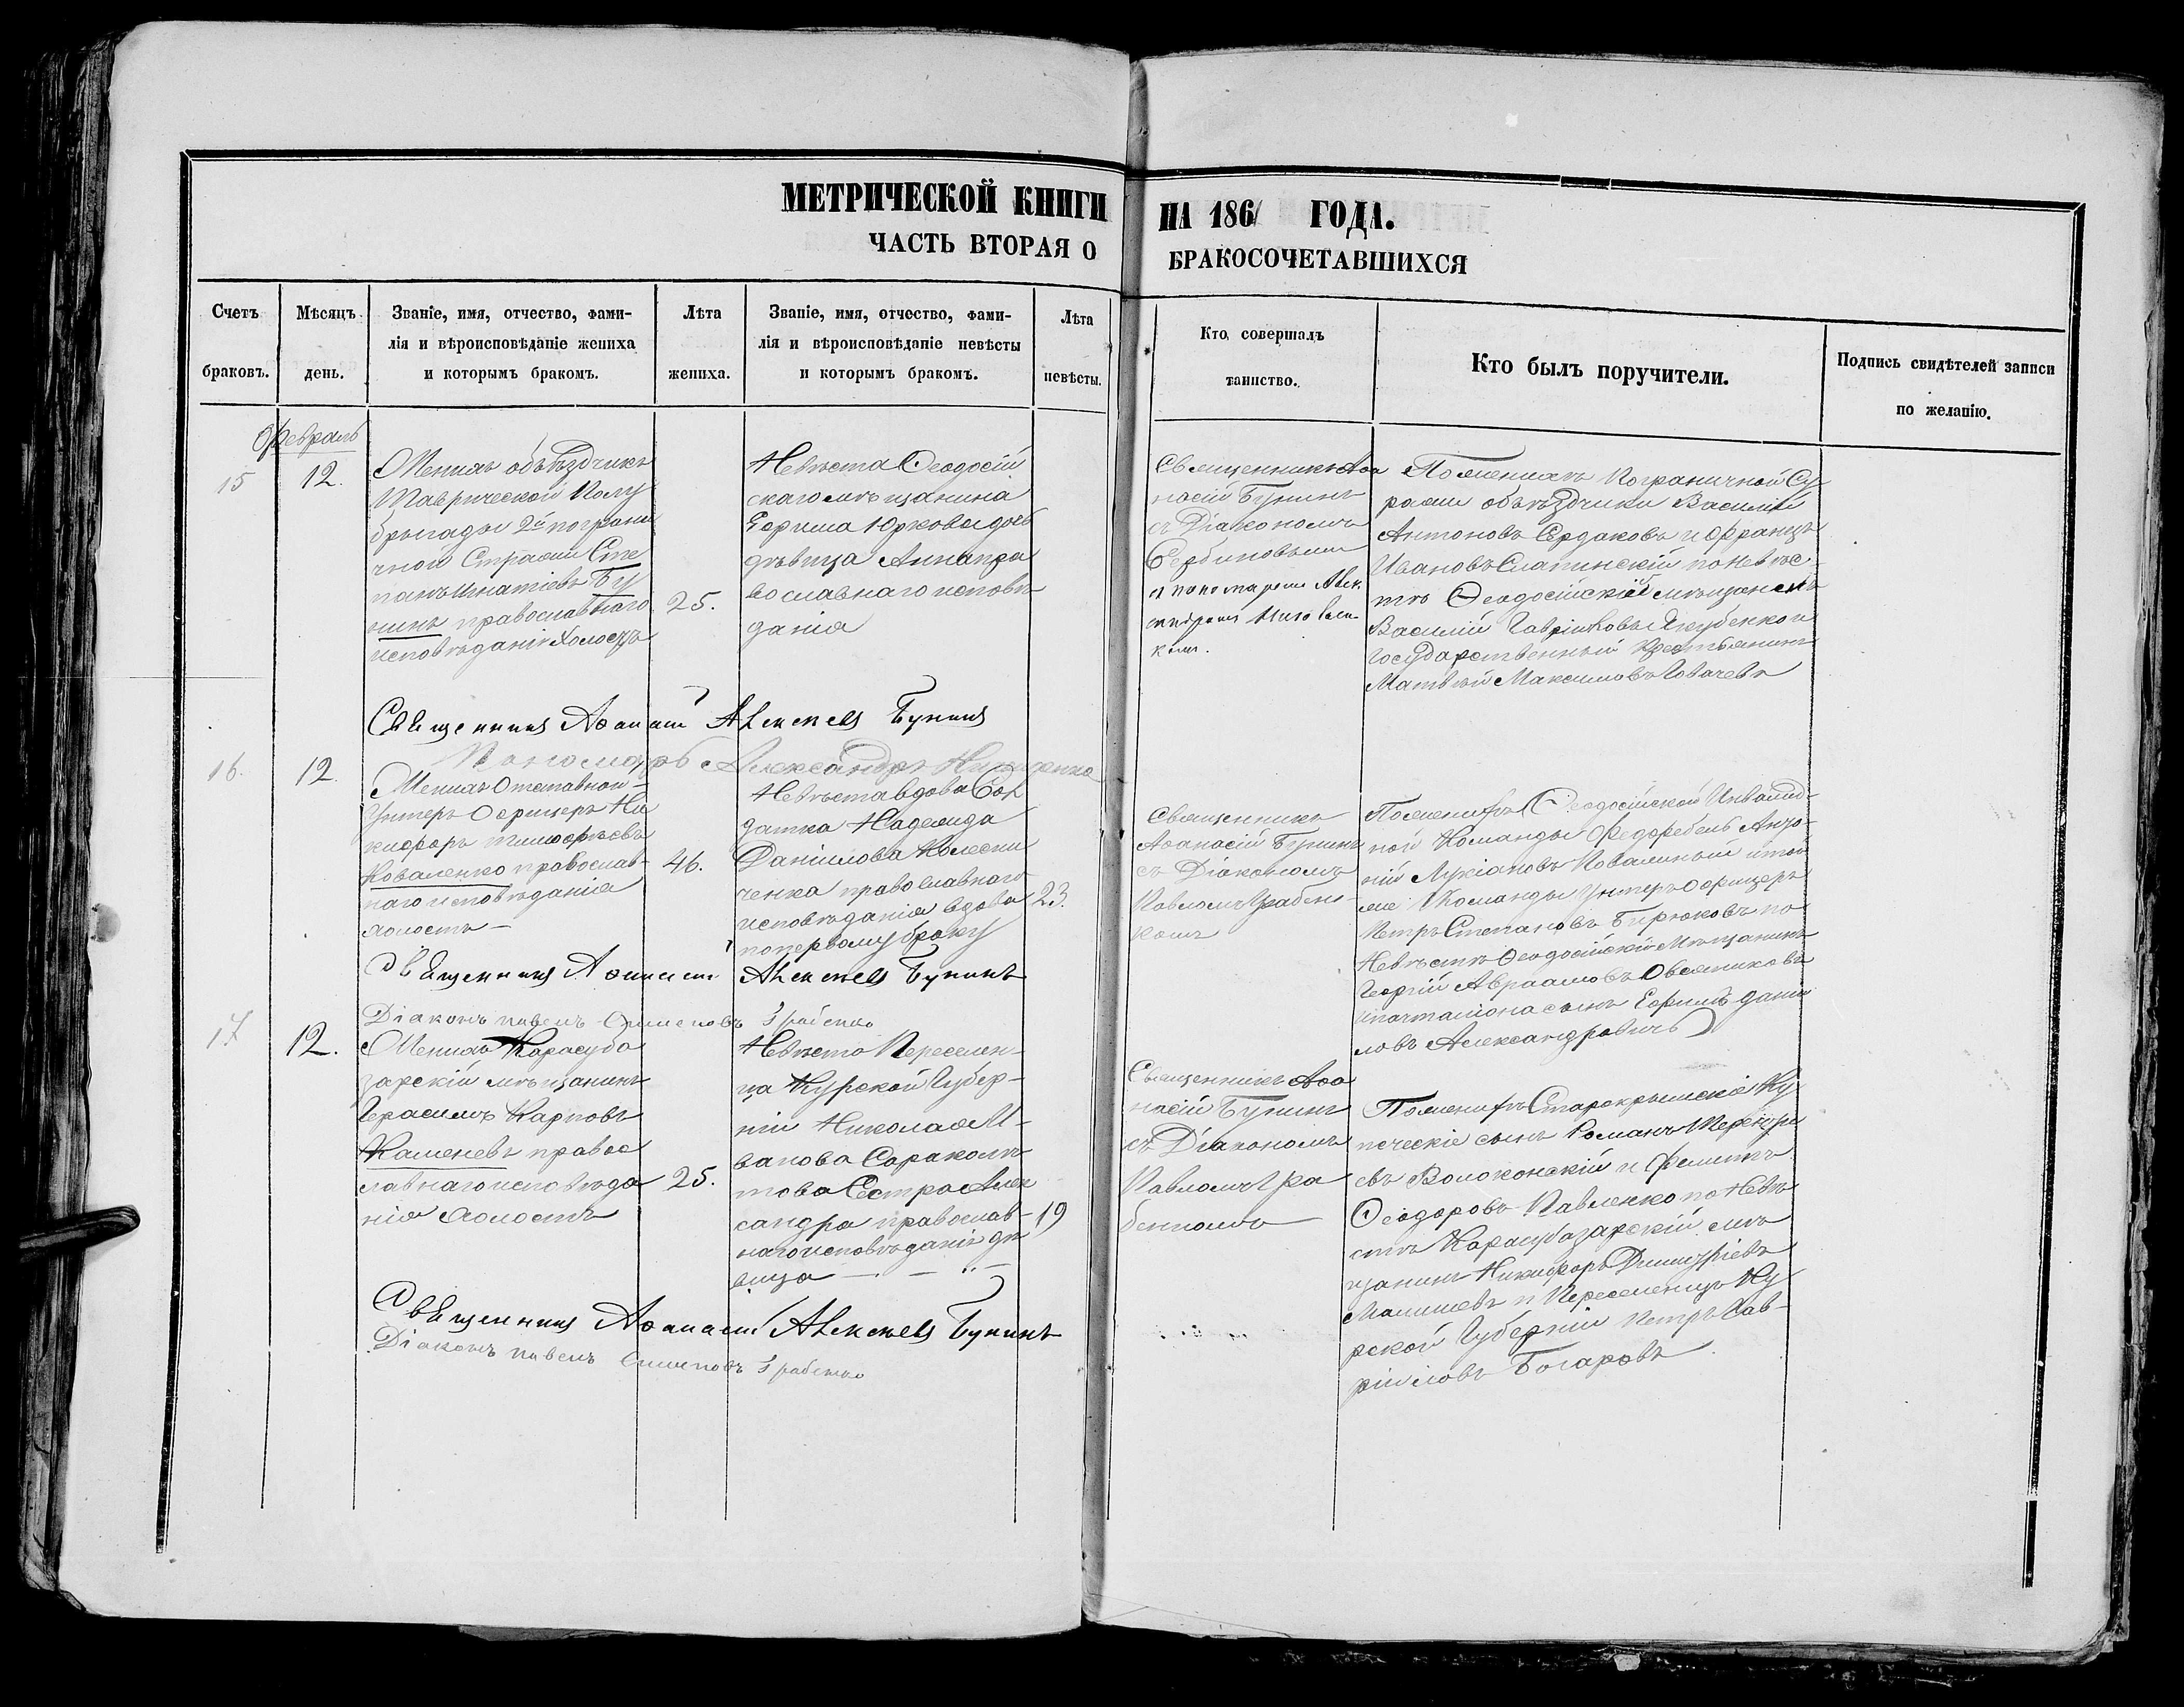 МЕТРИЧЕСКОЙ КНИГИ НА 1861 ГОДА.
ЧАСТЬ ВТОРАЯ О БРАКОСОЧЕТАВШИХСЯ
Счетъ браковъ.
Мѣсяцъ день.
Званіе, имя, отчество, фами-
лія и вѣроисповѣданіе жениха
и которымъ бракомъ.
Лѣта жениха.
Званіе, имя, отчество, фами-
лія и вѣроисповѣданіе невѣсты
и которымъ бракомъ.
Лѣта невѣсты.
Кто совершалъ
таинство.
Кто былъ поручители.
Подпись свидѣтелей записи
по желанію.
Февраль
15
12.
Женихъ объѣздчикъ
Таврической Полу
бригады 2й пограни
чной Стражи Сте
панъ Игнатіевъ Бу
нинъ православнаго
исповѣданія Холостъ
25.
Невѣста Ѳеодосій
скаго мѣщанина
Ефима Юркова дочь
дѣвица Анна пра
вославнаго исповѣ
данія
Священникъ Аѳа
насій Бунинъ
съ Діакономъ
и пономаремъ Алек
По женихѣ Пограничной Су
ражи объѣздчики Василій
Антоновъ Ердаковъ и Францъ
Ивановъ Слапинскій по невѣс
тѣ Ѳеодосійскій мѣщанинъ
Василій
Государственный Крестьянинъ
Матвей Максимовъ
Священникъ Аѳанасій Алексеевъ Бунинъ
Пономарь Александръ
16.
12
Женихъ Отставной
Унтеръ Офицеръ Ни
кифоръ Тимофѣевъ
Коваленко православ-
наго исповѣданія
холостъ
46.
Невѣста вдова Сол
датка Надежда
Даніилова Колесни
ченка православнаго
исповѣданія вдова
по первому браку
23.
Священникъ
Аѳанасій Бунинъ
съ Діакономъ
Павломъ Грабен-
комъ
По женихѣ Ѳеодосійской Инвалид-
ной Команды Фелдфебель Анто-
ній Лукіановъ Коваленый и той
же Команды Унтеръ Офицеръ
Петръ Степановъ Бирюковъ по
Невѣстѣ Ѳеодосійскій Мѣщанинъ
Георгій Авраамовъ Овсяниковъ
и почталіона сынъ Ефимъ Дани
ловъ Александровичъ
Священникъ Аѳанасій Алексеевъ Бунинъ
Діаконъ Павелъ Грабенко
17
12.
Женихъ Карасуба
зарскій мѣщанинъ
Герасимъ Карповъ
Каменевъ правос
лавнаго исповѣда
нія холостъ
25.
Невѣста Переселен-
ца Курской Губер-
ніи Николая И-
ванова Саракалѣ
това Сестра Алек
сандра православ-
наго исповѣданія дѣ
вица
19
Священникъ Аѳа
насій Бунинъ
съ Діакономъ
Павломъ Гра
бенкомъ
По женихѣ Старокрымскіе Ку
печескіе сынъ Романъ Терентіе
евъ Волоконскій и Филиппъ
Ѳеодоровъ Павленко по Невѣ
стѣ Карасубазарскій мѣ
щанинъ Никифоръ Димитріевъ
Малишевъ и Переселенецъ Ку
рской Губерніи Петръ Гав-
рииловъ Богаровъ
Священникъ Аѳанасій Алексеевъ Бунинъ
Діаконъ Павелъ Грабенко